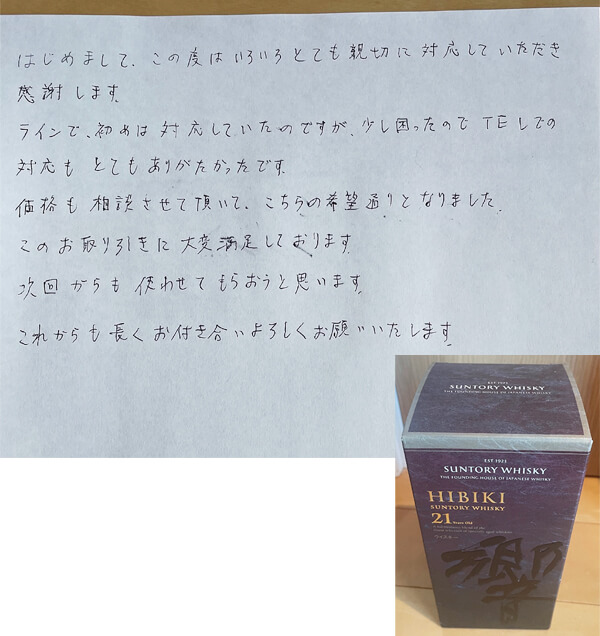 はじめまして、この度はいろいろとても親切に対応していただき
感謝します。
ラインで、初めは対応していたのですが、少し困ったのでTELでの
対応もとてもありがたかったです。
価格も相談させて頂いて、こちらの希望通りとなりました。
このお取り引きに大変満足しております。
次回からも使わせてもらおうと思います。
これからも長くお付き合いよろしくお願いいたします。
EST 1923
SUNTORY WHISKY
THE FOUNDING HOUSE OF JAPANESE WHISKY
EST 1923
SUNTORY WHISKY
THE FOUNDING HOUSE OF JAPANESE WHISKY
HIBIKI
SUNTORY WHISKY
21 Years Old
ウイスキー
響